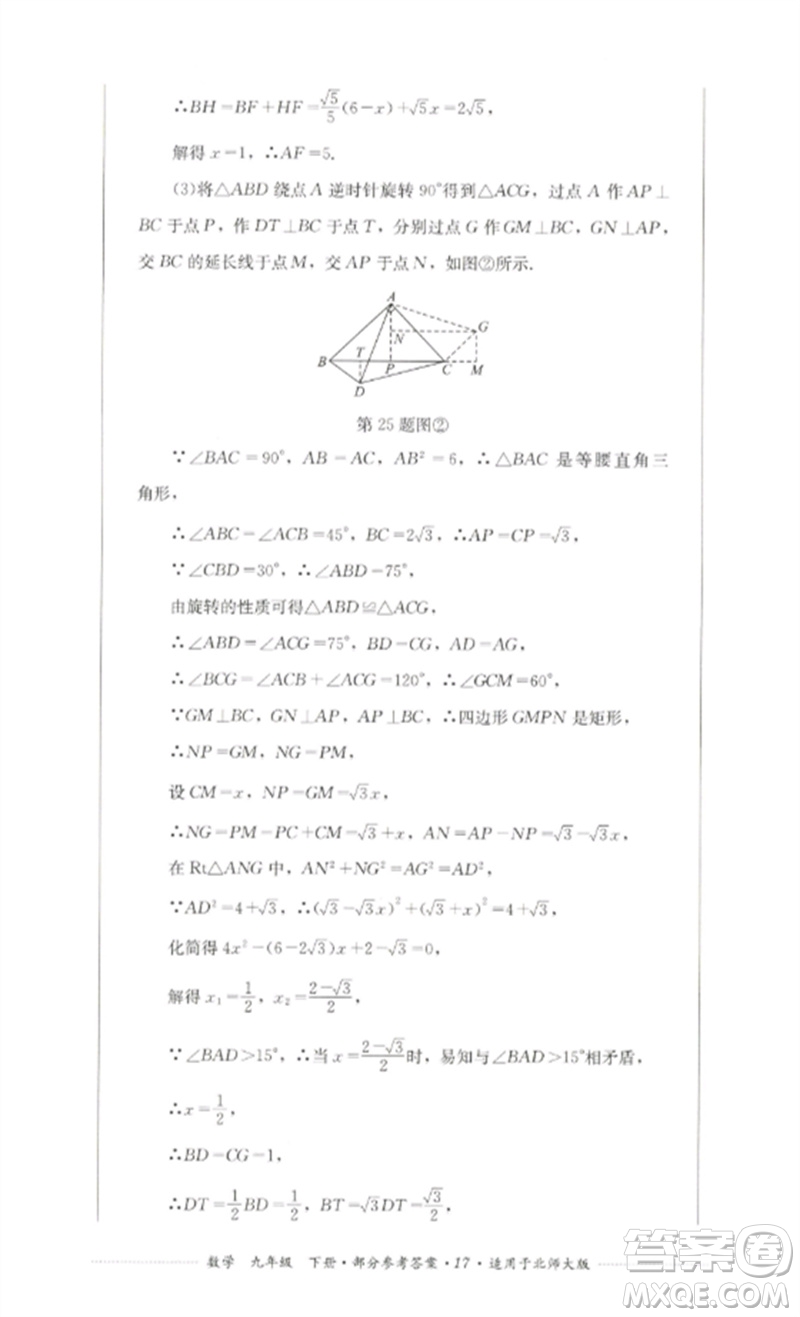 ∴BH=BF+HF=√5/5(6-x)+√5x=2√5,
解得 x=1, ∴AF=5.
(3)将△ABD 绕点 A 逆时针旋转 90°得到△ACG，过点 A 作 AP⊥
BC 于点 P，作 DT⊥BC 于点 T，分别过点 G 作 GM⊥BC，GN⊥AP，
交 BC 的延长线于点 M，交 AP 于点 N，如图②所示.
A
G
N
B
T
P
C
M
D
第 25 题图②
∵∠BAC=90°，AB=AC，AB²=6，∴△BAC 是等腰直角三
角形，
∴∠ABC=∠ACB=45°，BC=2√3，∴AP=CP=√3，
∵∠CBD=30°，∴∠ABD=75°，
由旋转的性质可得△ABD≌△ACG，
∴∠ABD=∠ACG=75°，BD=CG，AD=AG，
∴∠BCG=∠ACB+∠ACG=120°，∴∠GCM=60°，
∵GM⊥BC，GN⊥AP，AP⊥BC，∴四边形 GMPN 是矩形，
∴NP=GM，NG=PM，
设 CM=x，NP=GM=√3x，
∴NG=PM=PC+CM=√3+x，AN=AP-NP=√3-√3x，
在 Rt△ANG 中，AN²+NG²=AG²=AD²，
∵AD²=4+√3，∴(√3-√3x)²+(√3+x)²=4+√3，
化简得 4x²-(6-2√3)x+2-√3=0，
解得 x₁=1/2，x₂=(2-√3)/2，
∵∠BAD>15°，∴当 x=(2-√3)/2时，易知与∠BAD>15°相矛盾，
∴x=1/2，
∴BD=CG=1，
∴DT=1/2BD=1/2，BT=√3DT=√3/2，
数学 九年级 下册·部分参考答案·17·适用于北师大版
答案圈
MXQE.COM